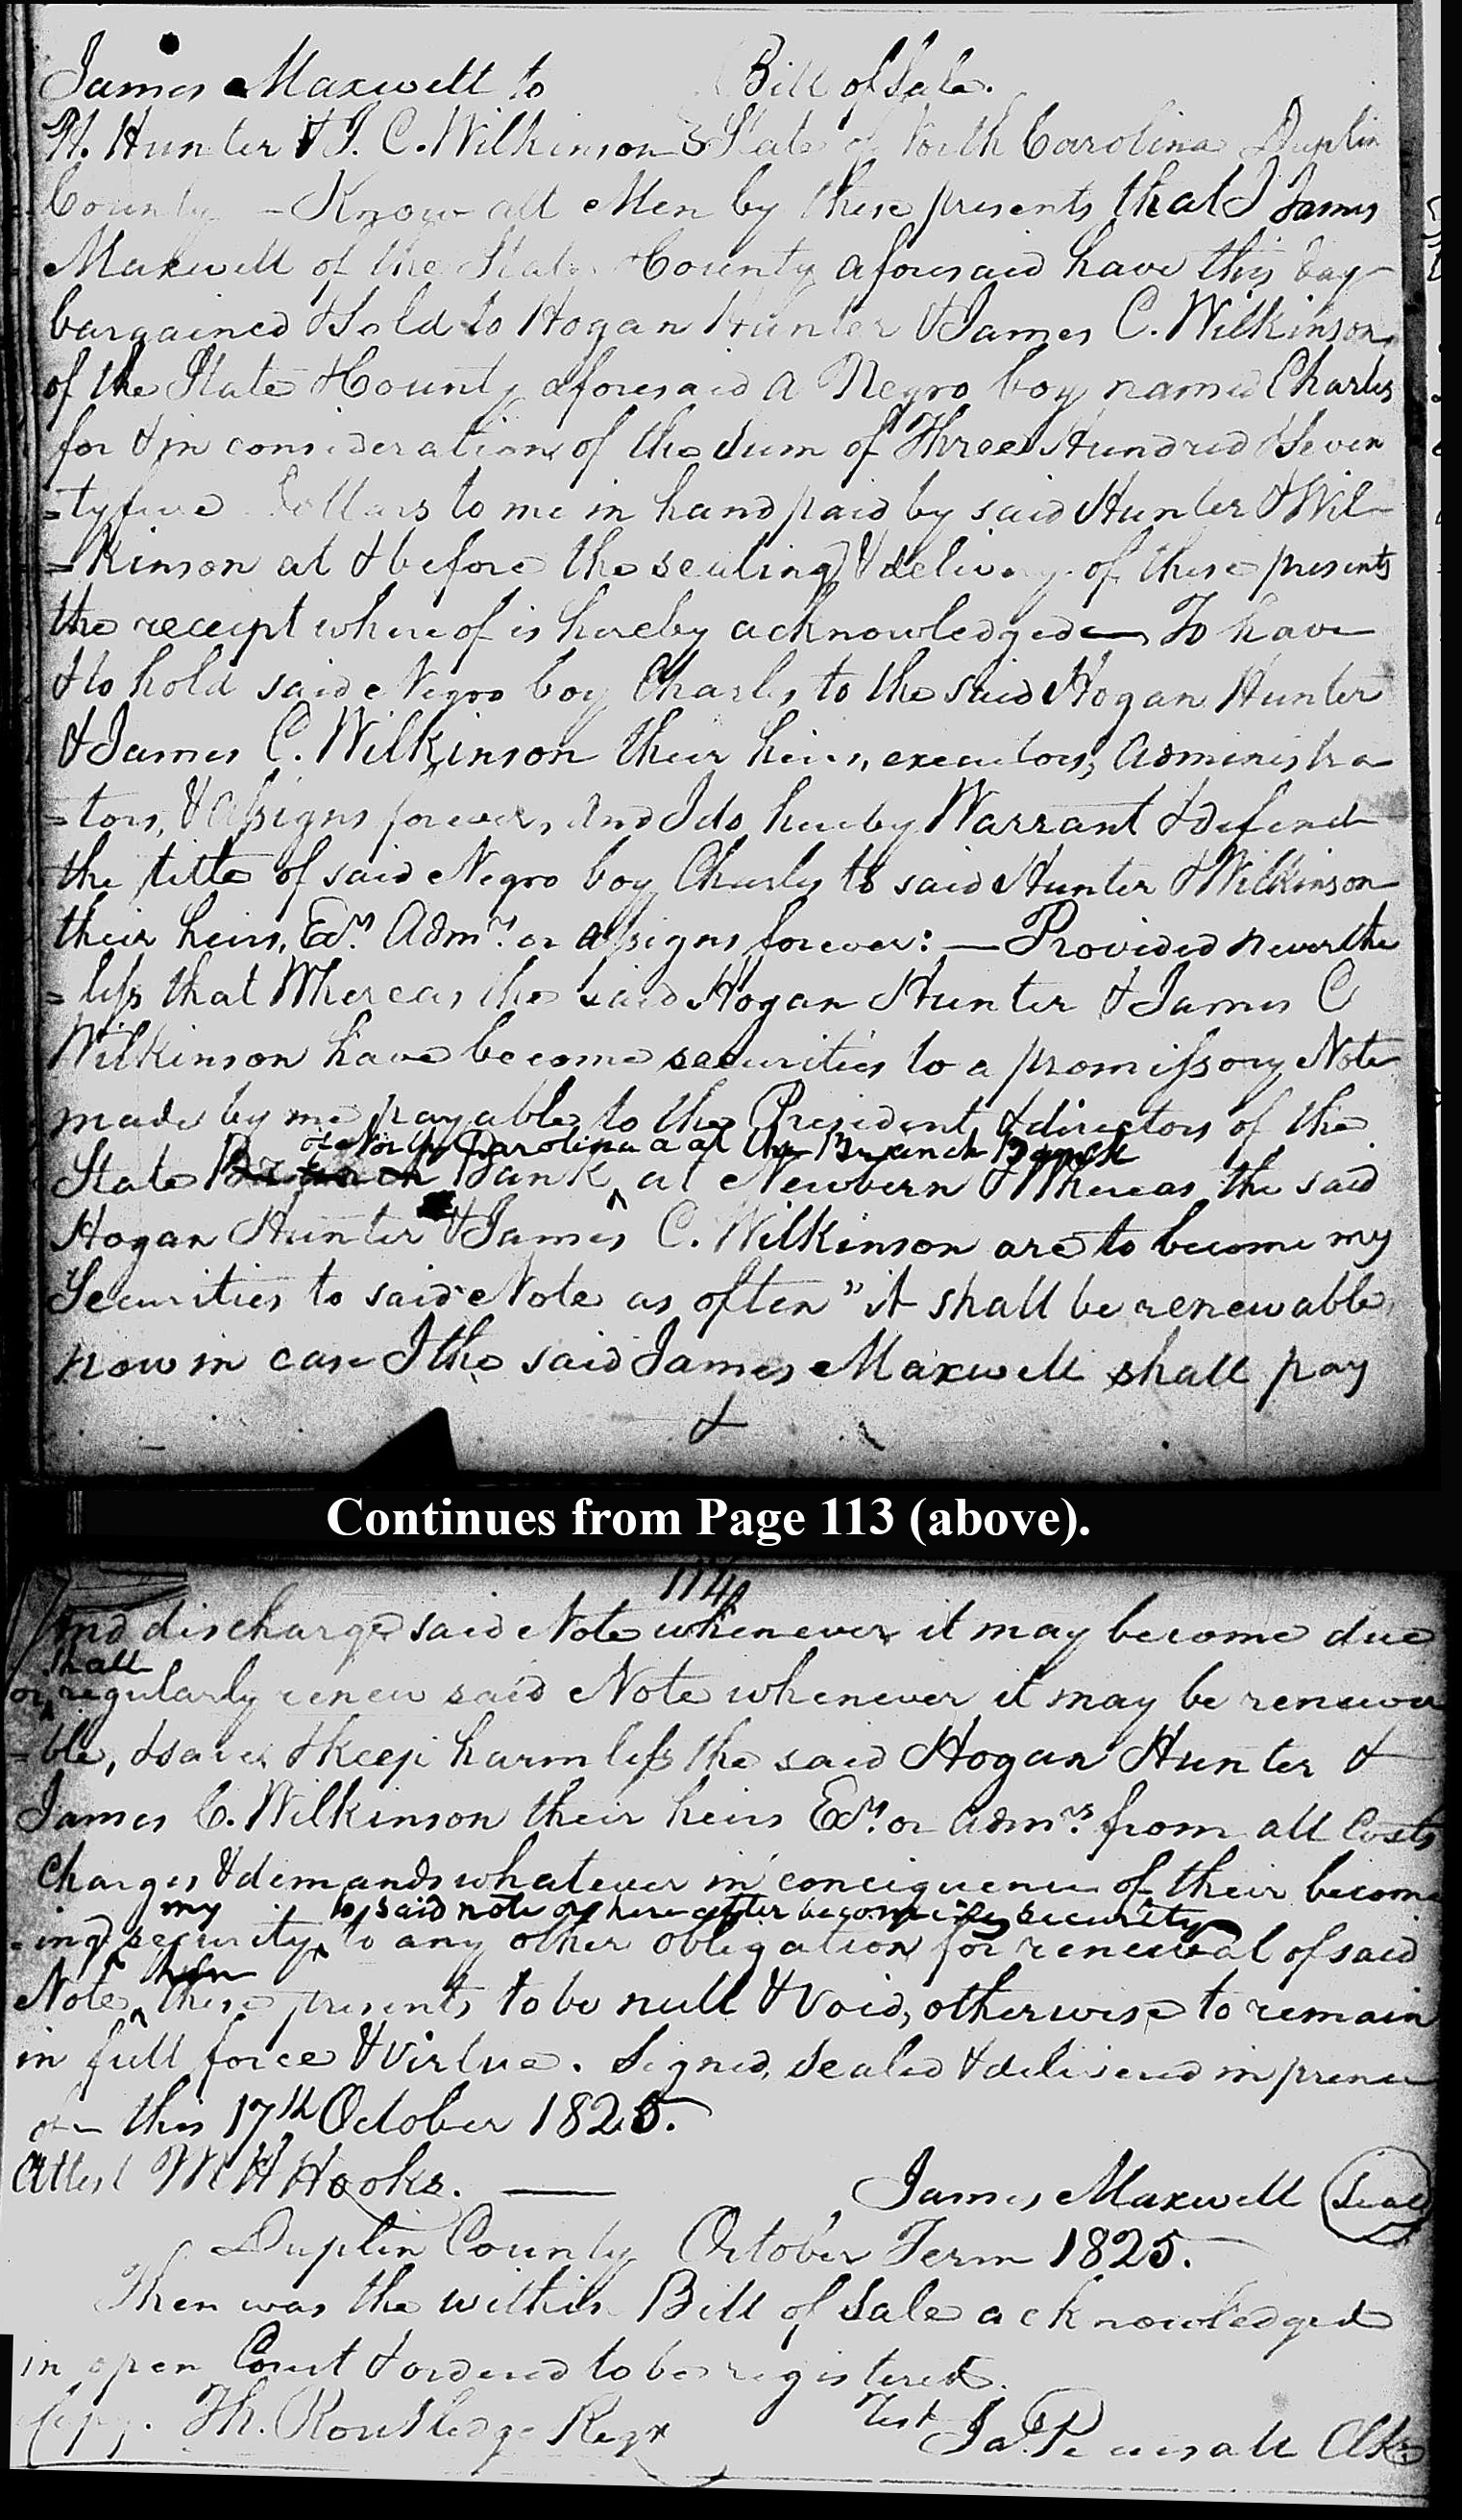 James Maxwell to Bill of Sale.
H. Hunter & J. C. Wilkinson } State of North Carolina Duplin
County - Know all Men by these presents that I James
Maxwell of the State & County aforesaid have this day
bargained & Sold to Hogan Hunter & James C. Wilkinson
of the State & County aforesaid a Negro boy named Charles
for & in consideration of the sum of Three Hundred & Seven
=ty five Dollars to me in hand paid by said Hunter & Wil-
=kinson at & before the sealing & delivery of these presents
the receipt whereof is hereby acknowledged — To have
& to hold said Negro boy Charles to the said Hogan Hunter
& James C. Wilkinson their heirs, executors, Administra
=tors, & assigns forever, And I do hereby Warrant & defend
the title of said Negro boy Charles to said Hunter & Wilkinson
their heirs, Exrs. Admrs. or assigns forever: — Provided neverthe
=less that Whereas the said Hogan Hunter & James C
Wilkinson have become securities to a promissory Note
made by me payable to the President & directors of the
of North Carolina a at the Branch Bank
State Branch Bank ^ at Newbern & Whereas the said
Hogan Hunter & James C. Wilkinson are to become my
Securities to said Note as often " it shall be renewable,
now in case I the said James Maxwell shall pay
&
Continues from Page 113 (above).
114
And discharge said Note whenever it may become due
shall
or ^ regularly renew said Note whenever it may be renewa
=ble, & save & keep harmless the said Hogan Hunter &
James C. Wilkinson their heirs Exrs. or admrs. from all Costs
Charges & demands whatever in conciquence of their becom
my to said note or here after becoming security
=ing ^ security ^ to any other obligation for renewal of said
then
Note ^ these presents to be null & void, otherwise to remain
in full force & virtue. Signed, Sealed & delivered in presen
of — this 17th October 1825.
Attest M H Hooks. — James Maxwell (Seal)
Duplin County October Term 1825.
Then was the within Bill of Sale acknowledged
in open Court & ordered to be registered.
Copy. Th. Routledge Regr Test Ja. Pearsall Clk.